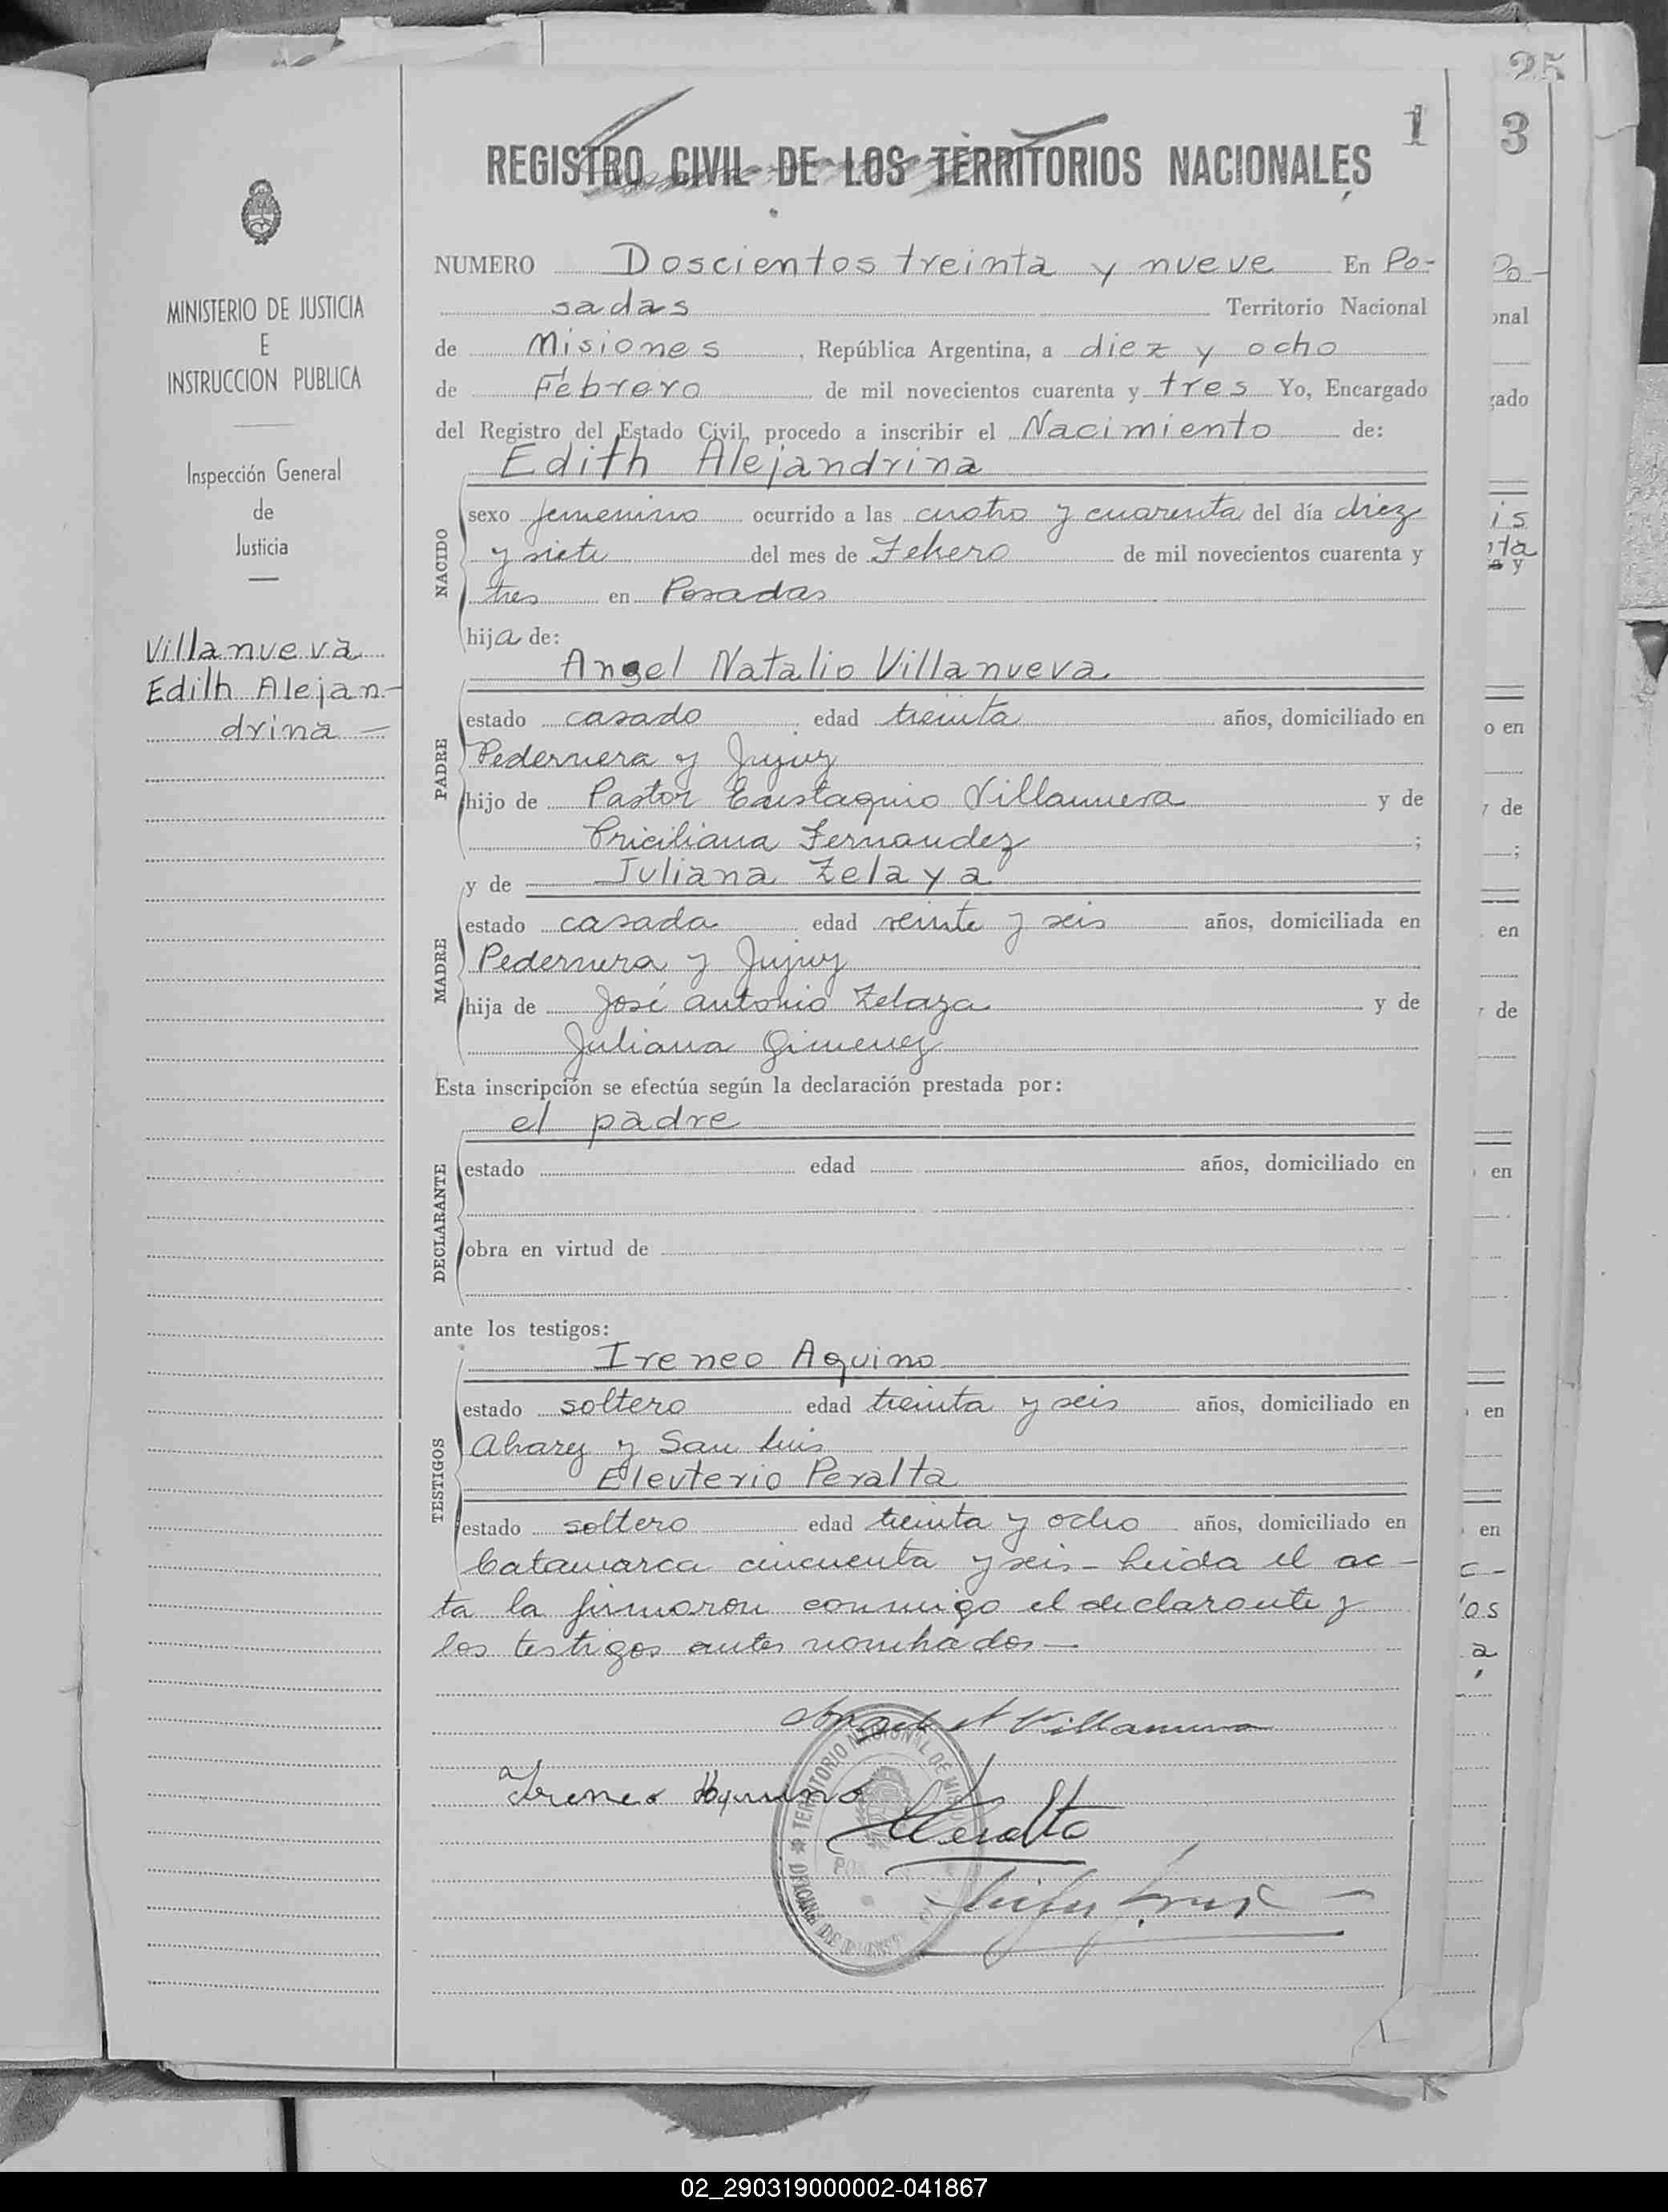 25
1
3
REGISTRO CIVIL DE LOS TERRITORIOS NACIONALES
MINISTERIO DE JUSTICIA
E
INSTRUCCION PUBLICA
Inspección General
de
Justicia
Villanueva
Edith Alejan-
drina —
NUMERO Doscientos treinta y nueve En Po-
sadas Territorio Nacional
de Misiones, República Argentina, a diez y ocho
de Febrero de mil novecientos cuarenta y tres Yo, Encargado
del Registro del Estado Civil, procedo a inscribir el Nacimiento de:
Edith Alejandrina
NACIDO
sexo femenino ocurrido a las cuatro y cuarenta del día diez
y siete del mes de Febrero de mil novecientos cuarenta y
tres en Posadas
hija de:
Angel Natalio Villanueva
PADRE
estado casado edad treinta años, domiciliado en
Pedernera y Jujuy
hijo de Pastor Eustaquio Villanueva y de
Priciliana Fernandez ;
y de Juliana Zelaya
MADRE
estado casada edad veinte y seis años, domiciliada en
Pedernera y Jujuy
hija de José Antonio Zelaya y de
Juliana Gimenez
Esta inscripción se efectúa según la declaración prestada por:
el padre
DECLARANTE
estado edad años, domiciliado en
obra en virtud de
ante los testigos:
Ireneo Aquino
TESTIGOS
estado soltero edad treinta y seis años, domiciliado en
y San Luis
Eleuterio Peralta
estado soltero edad treinta y ocho años, domiciliado en
Catamarca cincuenta y seis - Leida el ac-
ta la firmaron conmigo el declarante y
los testigos antes nombrados —
Angel N Villanueva
Ireneo Aquino
Peralta
TERRITORIO NACIONAL DE MISIONES
OFICINA DE
02_290319000002-041867